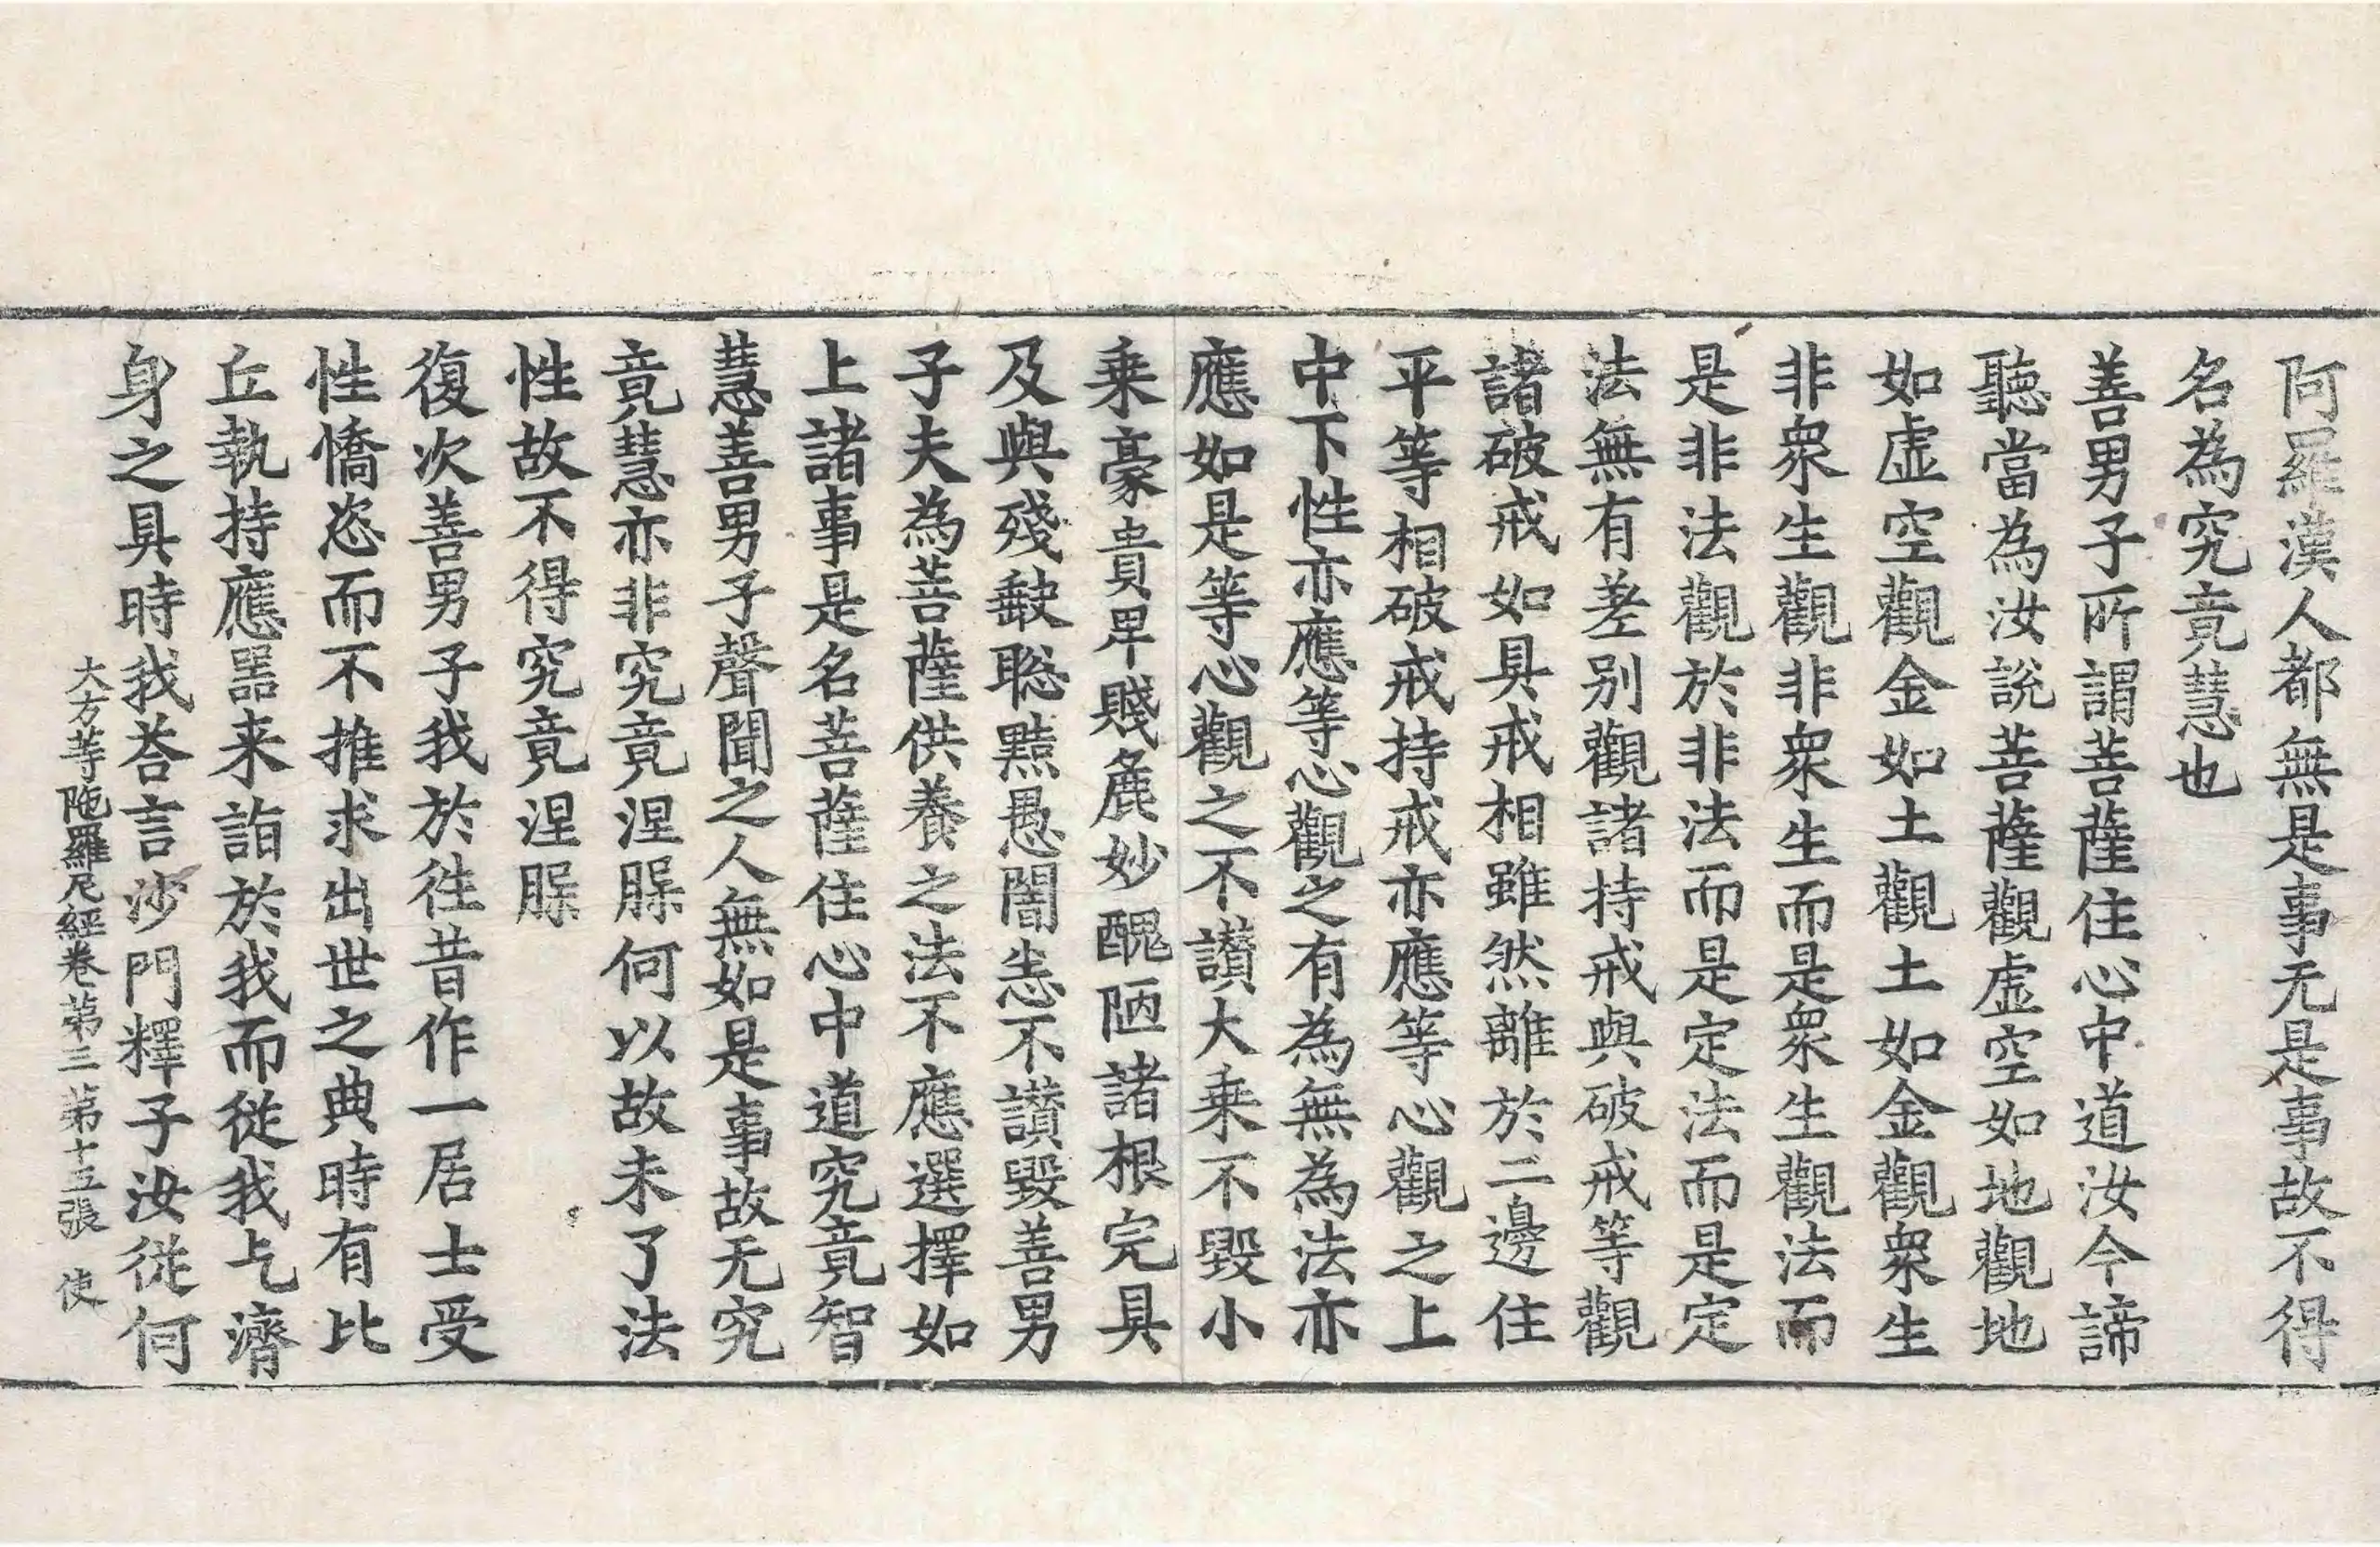 阿羅漢人都無是事无是事故不得
名為究竟慧也
善男子所謂菩薩住心中道汝今諦
聽當為汝說菩薩觀虛空如地觀地
如虛空觀金如土觀土如金觀衆生
非衆生觀非衆生而是衆生觀法而
是非法觀於非法而是定法而是定
法無有差别觀諸持戒與破戒等觀
諸破戒如具戒相雖然離於二邊住
平等相破戒持戒亦應等心觀之上
中下性亦應等心觀之有為無為法亦
應如是等心觀之不讃大乗不毀小
乗豪貴卑賤麁妙醜陋諸根完具
及與殘𡙇聡黠愚闇恚不讃毀善男
子夫為菩薩供養之法不應選擇如
上諸事是名菩薩住心中道究竟智
慧善男子聲聞之人無如是事故无究
竟慧亦非究竟涅脲何以故未了法
性故不得究竟涅脲
復次善男子我於徃昔作一居士受
性憍恣而不推求出世之典時有比
丘執持應噐来詣於我而從我乞濟
身之具時我荅言沙門釋子汝從何
大方等陁羅尼經卷第三 第十五張 使